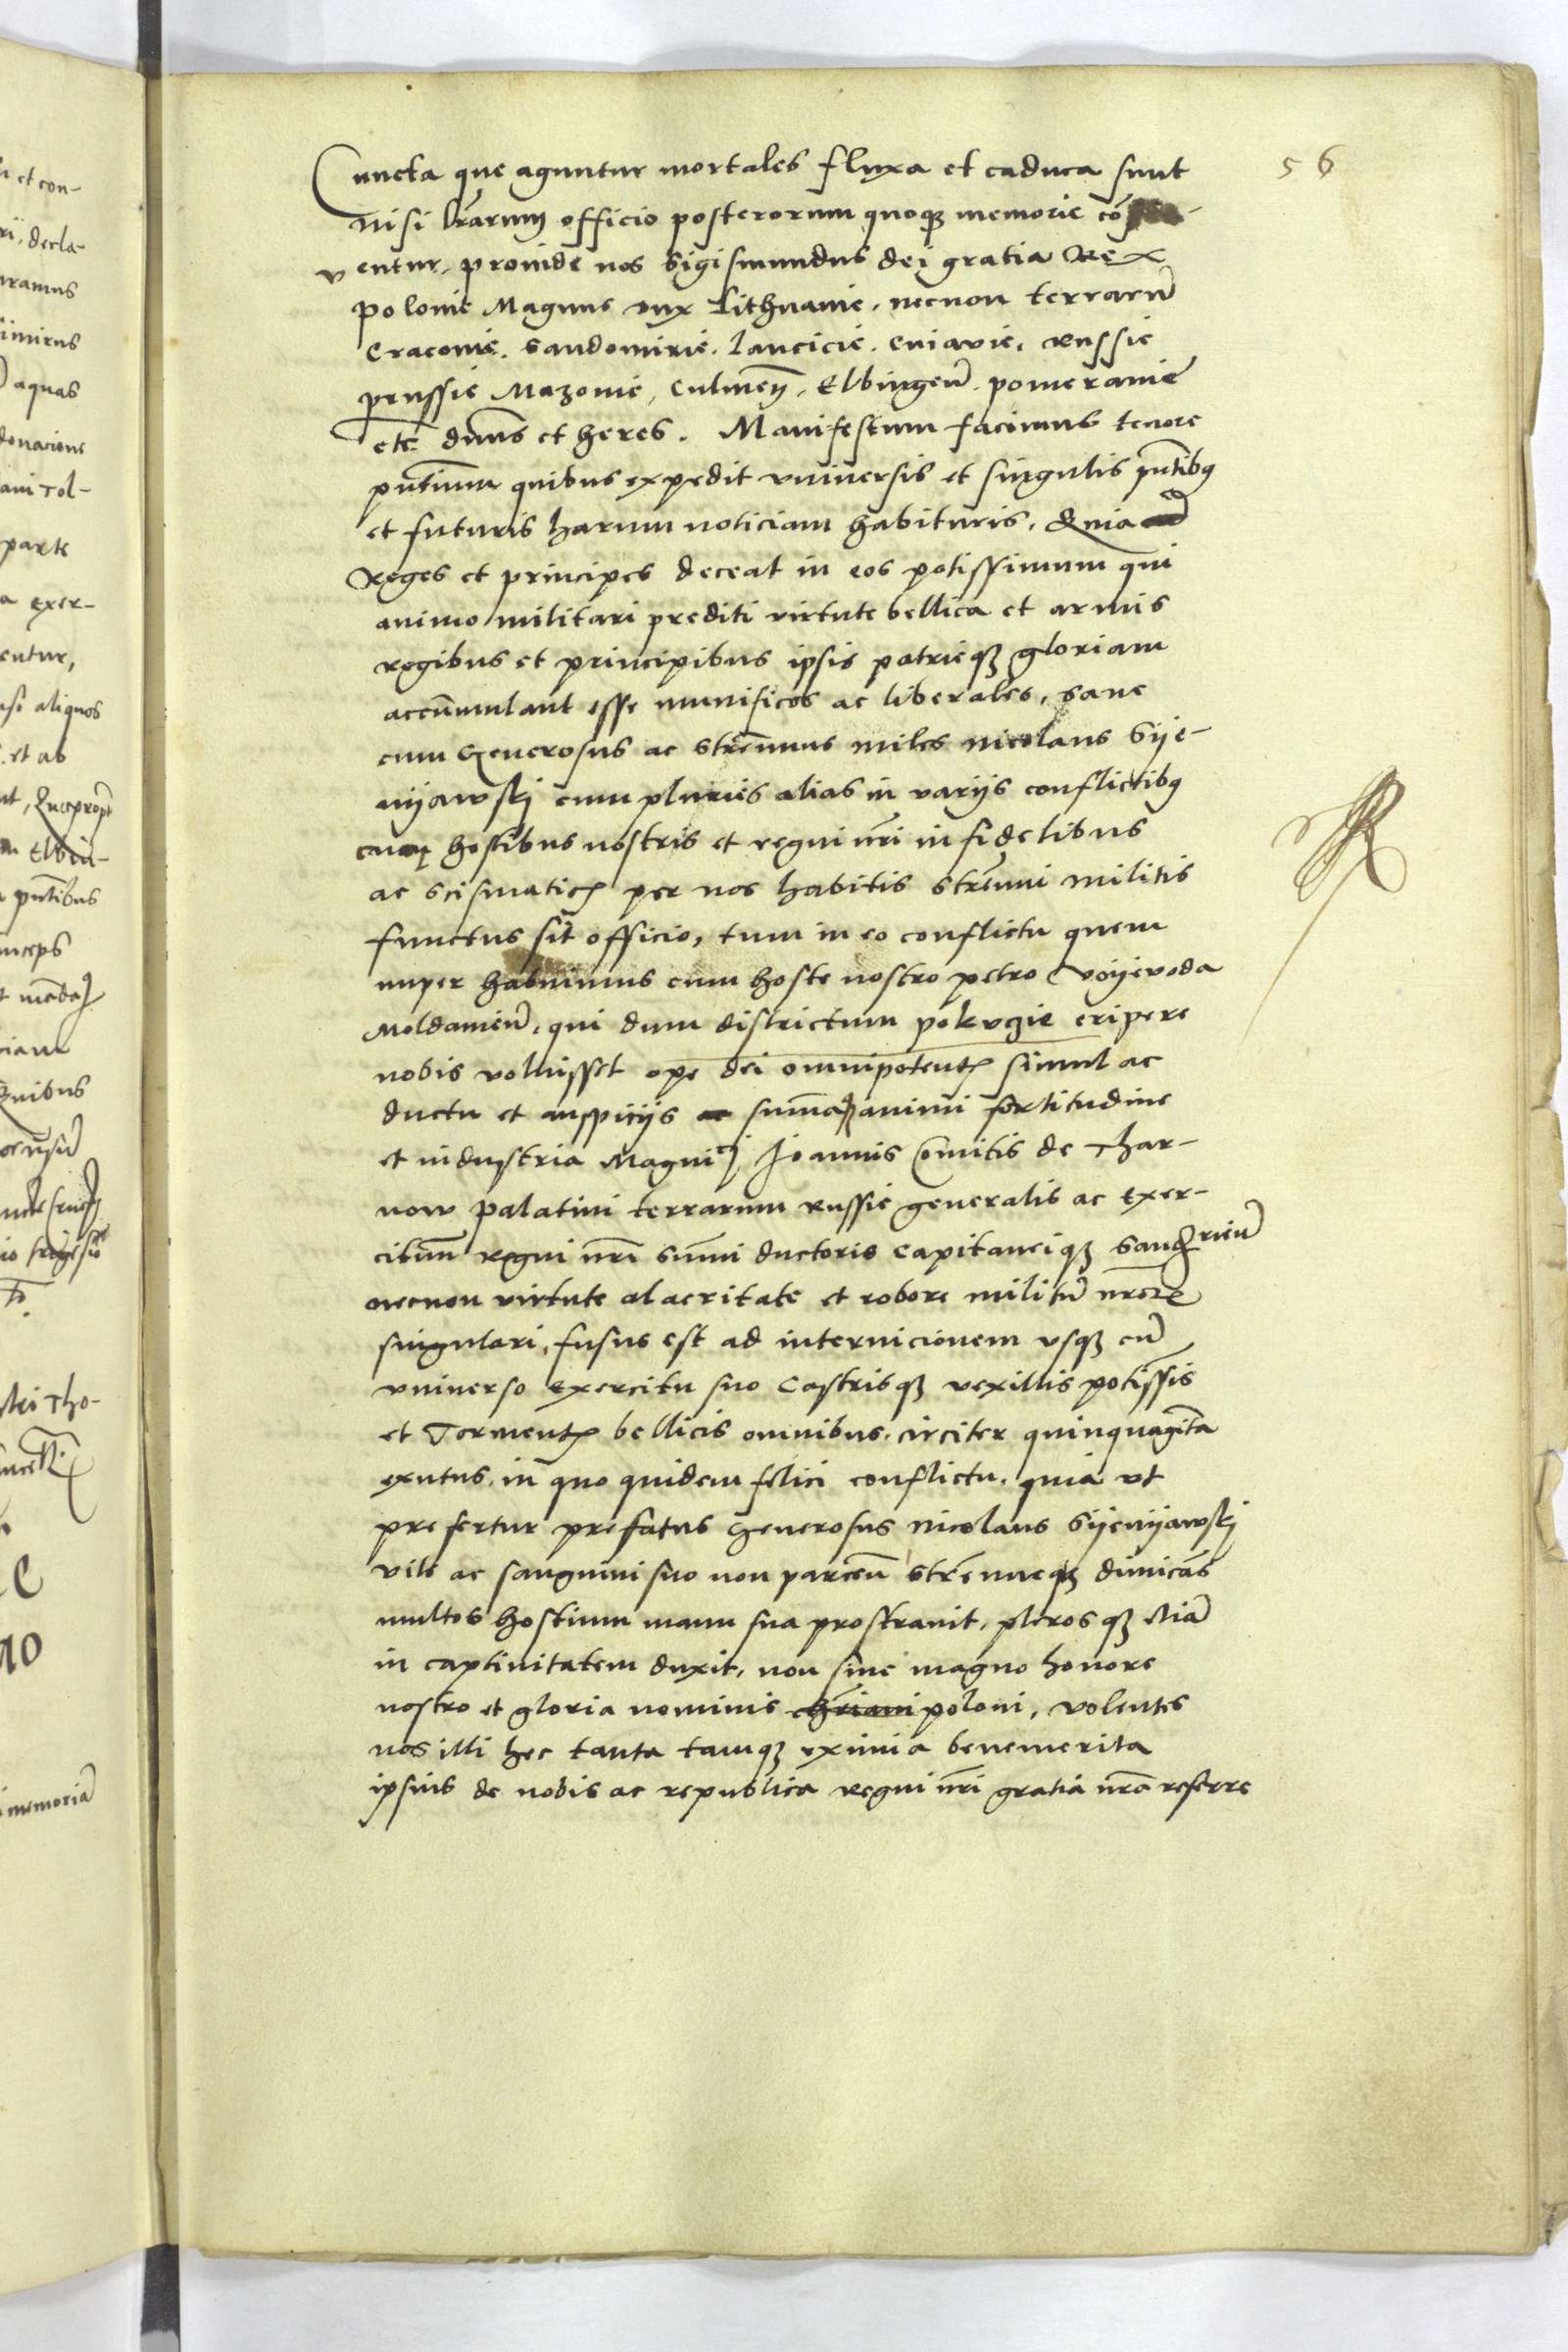 56
Cuncta que aguntur mortales fluxa et caduca sunt
nisi lr̄arum officio posterorum quoqꝫ memorie cō-
ventur, proinde nos Sigismundus dei gratia Rex
polonie Magnus dux Lithuanie, necnon terrarū
Cracouie. Sandomirie. Lancicie. Cuiavie. Russie
prussie Mazouie, Culmeñ, Elbingeñ. pomeranie
etc̄ dnūs et heres. Manifestum facimus tenore
pn̄tium quibus expedit vniuersis et singulis pn̄tibꝰ
et futuris harum noticiam habituris. Quia
Reges et principes deceat in eos potissimum qui
animo militari prediti virtute bellica et armis
regibus et principibus ipsis patrieqꝫ gloriam
accūmulant esse munificos ac liberales, sane
cum Generosus ac strēnuus miles nicolaus Syie-
nyawskj cum pluries alias in varijs conflictibꝰ
cum hostibus nostris et regni nr̄i infidelibus
ac scismaticꝭ per nos habitis strēnui militis
functus sit officio, tum in eo conflictu quem
nuper habuimus cum hoste nostro petro voyevoda
Moldauieñ, qui dum districtum pokvczie eripere
nobis voluisset ope dei omnipotentꝭ simul ac
ductu et auspicijs ac sum̄aqꝫ animi fortitudine
et industria Magnicj Joannis Comitis de Thar-
now palatini terrarum russie generalis ac exer-
cituum regni nr̄i sūmi ductoris Capitaneiqꝫ Sandrieñ
necnon virtute alacritate et robore militū nr̄orꝫ
singulari, fusus est ad internicionem usqꝫ cū
vniuerso exercitu suo Castrisqꝫ vexillis potissīs
et Tormentꝭ bellicis omnibus. circiter quinquagīta
exutus. in quo quidem felici conflictu. quia vt
prefertur prefatus Generosus nicolaus Syenyawskj
vite ac sanguini suo non parceñ strēnueqꝫ dimicās
multos hostium manu sua prostravit, plerosqꝫ etiā
in captiuitatem duxit, non sine magno honore
nostro et gloria nominis chr̄iani poloni, volentes
nos illi hec tanta tamqꝫ eximia benemerita
ipsius de nobis ac republica regni nr̄i gratia nr̄a referre